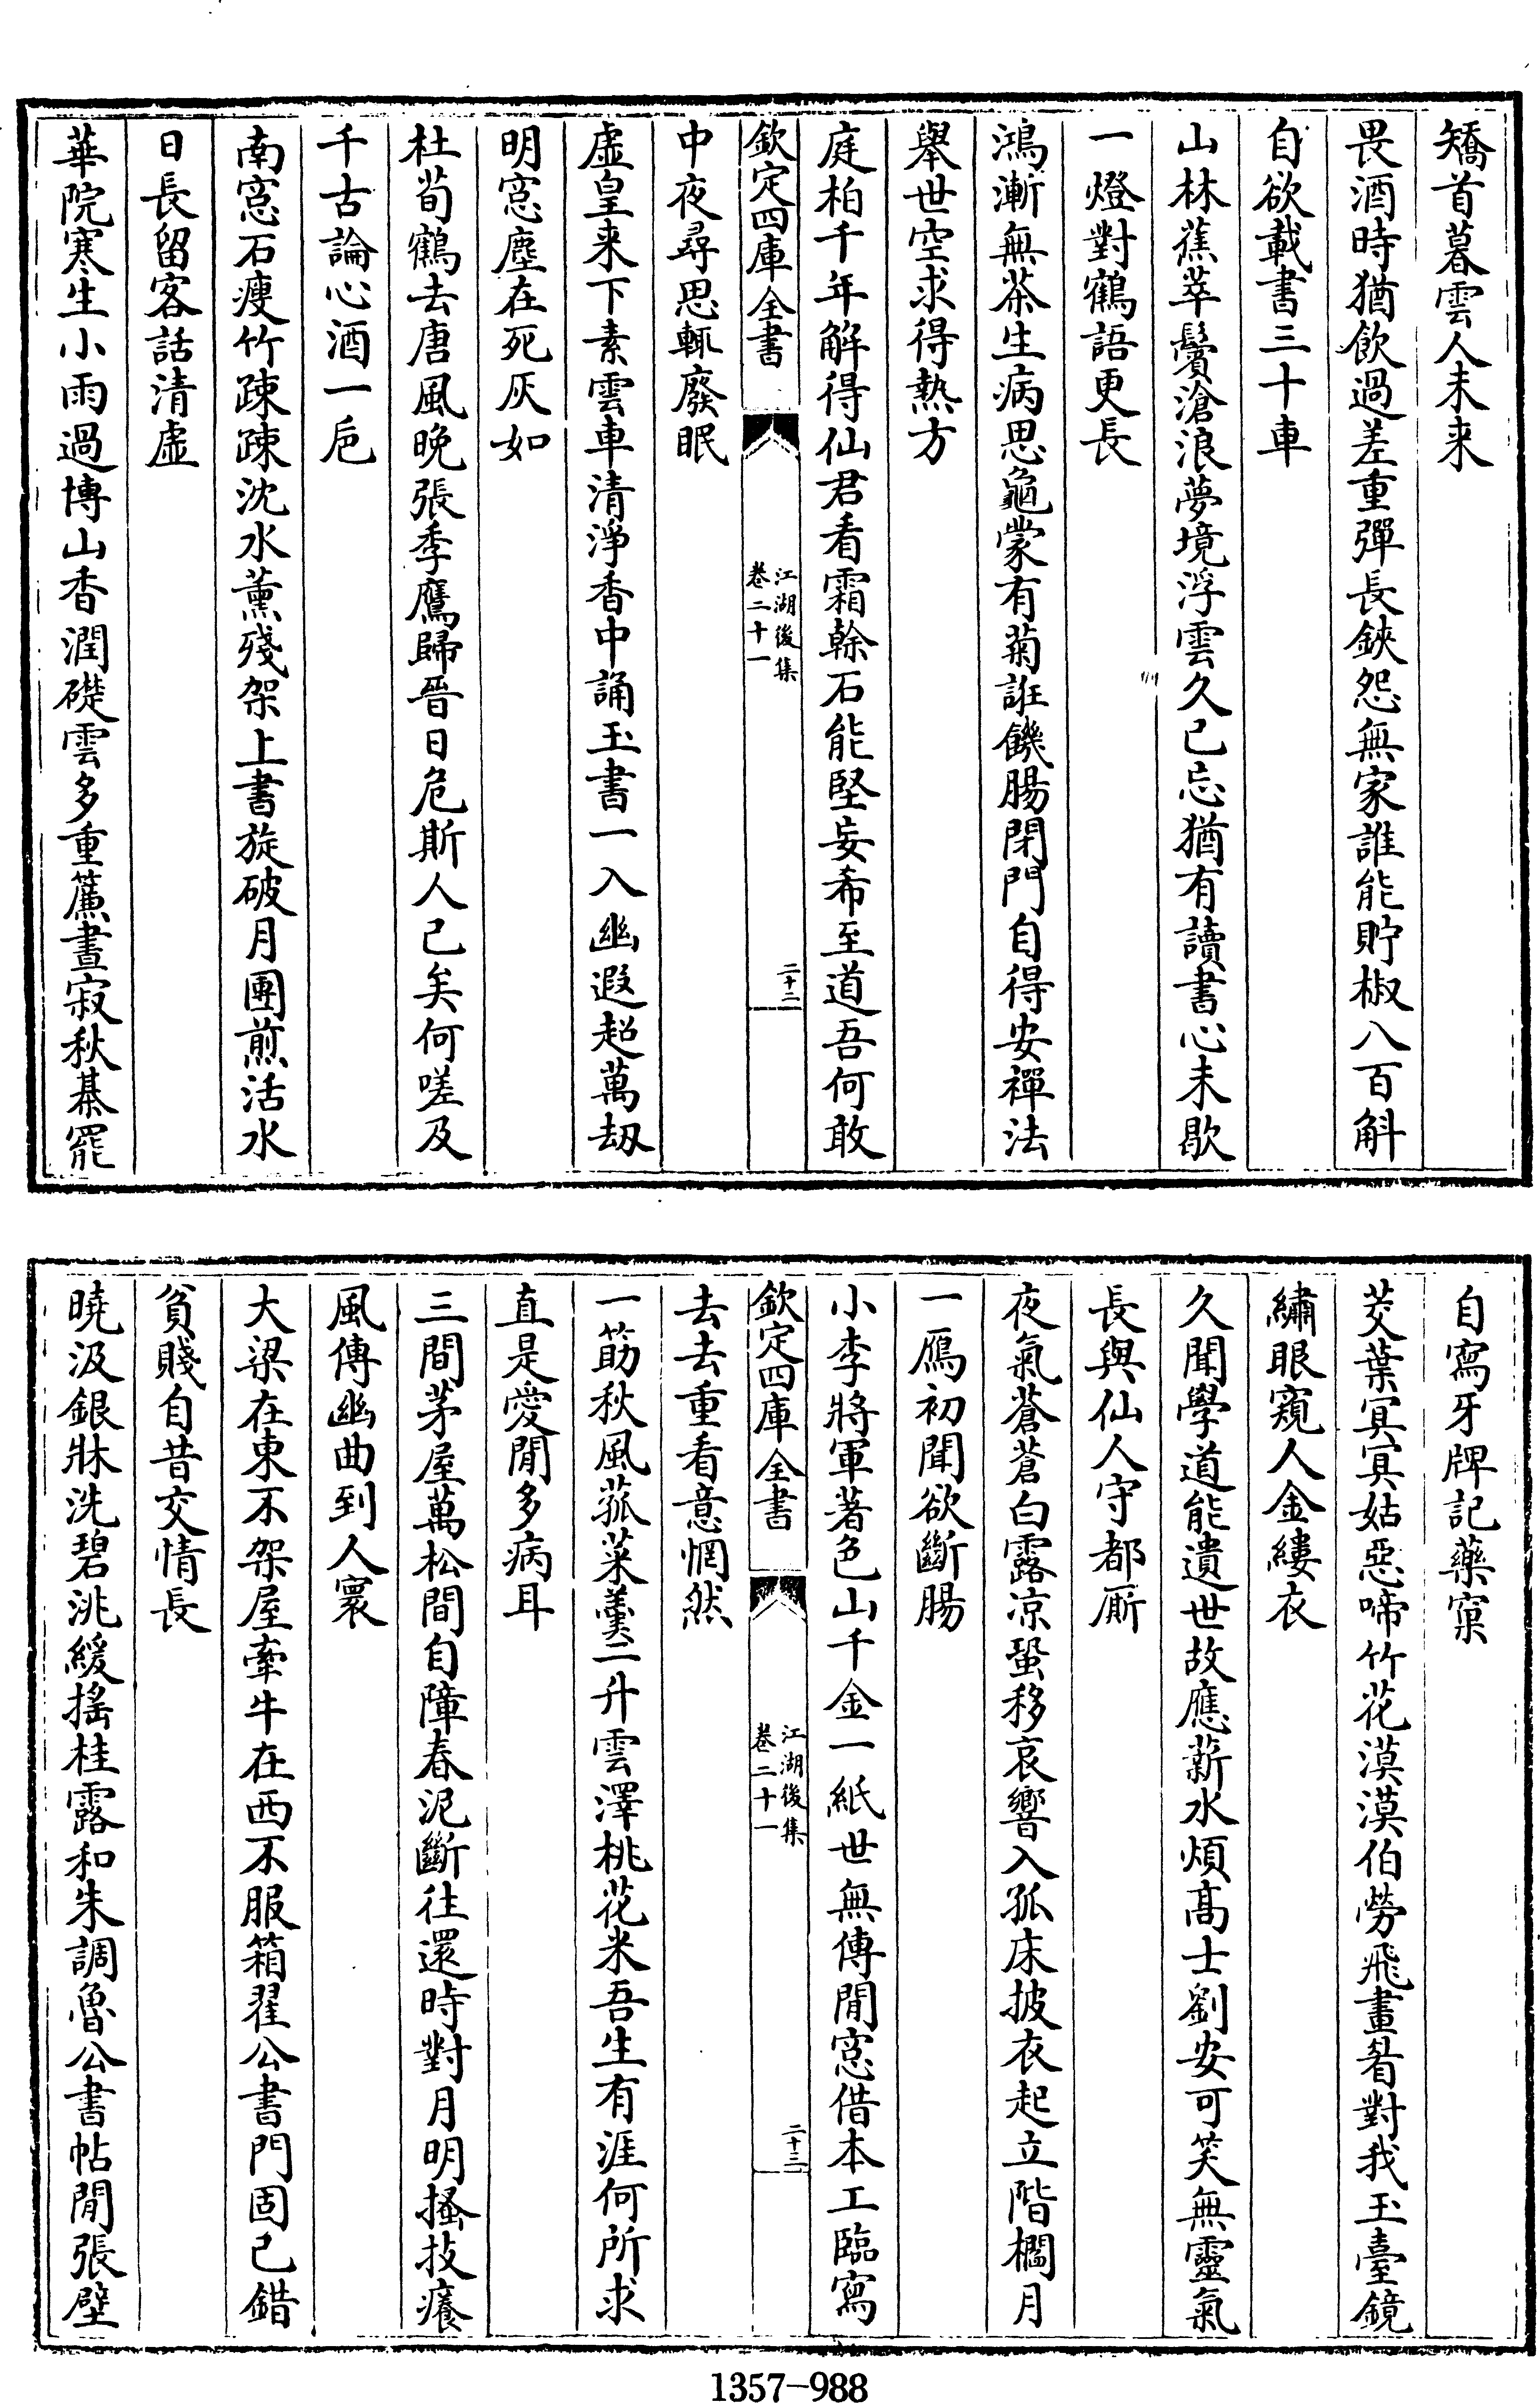 矯首暮雲人未来
畏酒時猶飲過差重彈長鋏怨無家誰能貯椒八百斛
自欲載書三十車
山林蕉萃鬢滄浪夢境浮雲久已忘猶有讀書心未歇
一燈對鶴語更長
鴻漸無茶生病思龜蒙有菊誑饑腸閉門自得安禪法
舉世空求得熱方
庭柏千年解得仙君看霜榦石能堅妄希至道吾何敢
欽定四庫全書
江湖後集
卷二十一
二十二
中夜尋思輒廢眠
虛皇来下素雲車清淨香中誦玉書一入幽遐超萬刼
明窓塵在死灰如
杜荀鶴去唐風晚張季鷹歸晉日危斯人已矣何嗟及
千古論心酒一巵
南窓石瘦竹疎疎沈水薰殘架上書旋破月團煎活水
日長留客話清虛
華院寒生小雨過博山香潤礎雲多重簾晝寂秋棊罷
自寫牙牌記藥窠
茭葉冥冥姑惡啼竹花漠漠伯勞飛畫眉對我玉臺鏡
繡眼窺人金縷衣
久聞學道能遺世故應薪水煩高士劉安可笑無靈氣
長與仙人守都厠
夜氣蒼蒼白露凉蛩移哀響入孤床披衣起立階櫩月
一鴈初聞欲斷腸
小李將軍著色山千金一紙世無傳閒窓借本工臨寫
欽定四庫全書
江湖後集
卷二十一
二十三
去去重看意惘然
一筯秋風菰菜羹二升雲澤桃花米吾生有涯何所求
直是愛閒多病耳
三間茅屋萬松間自障春泥斷往還時對月明搔技癢
風傳幽曲到人寰
大梁在東不架屋牽牛在西不服箱翟公書門固已錯
貧賤自昔交情長
曉汲銀牀洗碧洮緩搖桂露和朱調魯公書帖閒張壁
1357-988